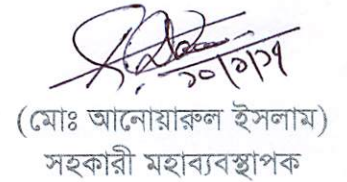 ১০/১/১৭
(মোঃ আনোয়ারুল ইসলাম)
সহকারী মহাব্যবস্থাপক